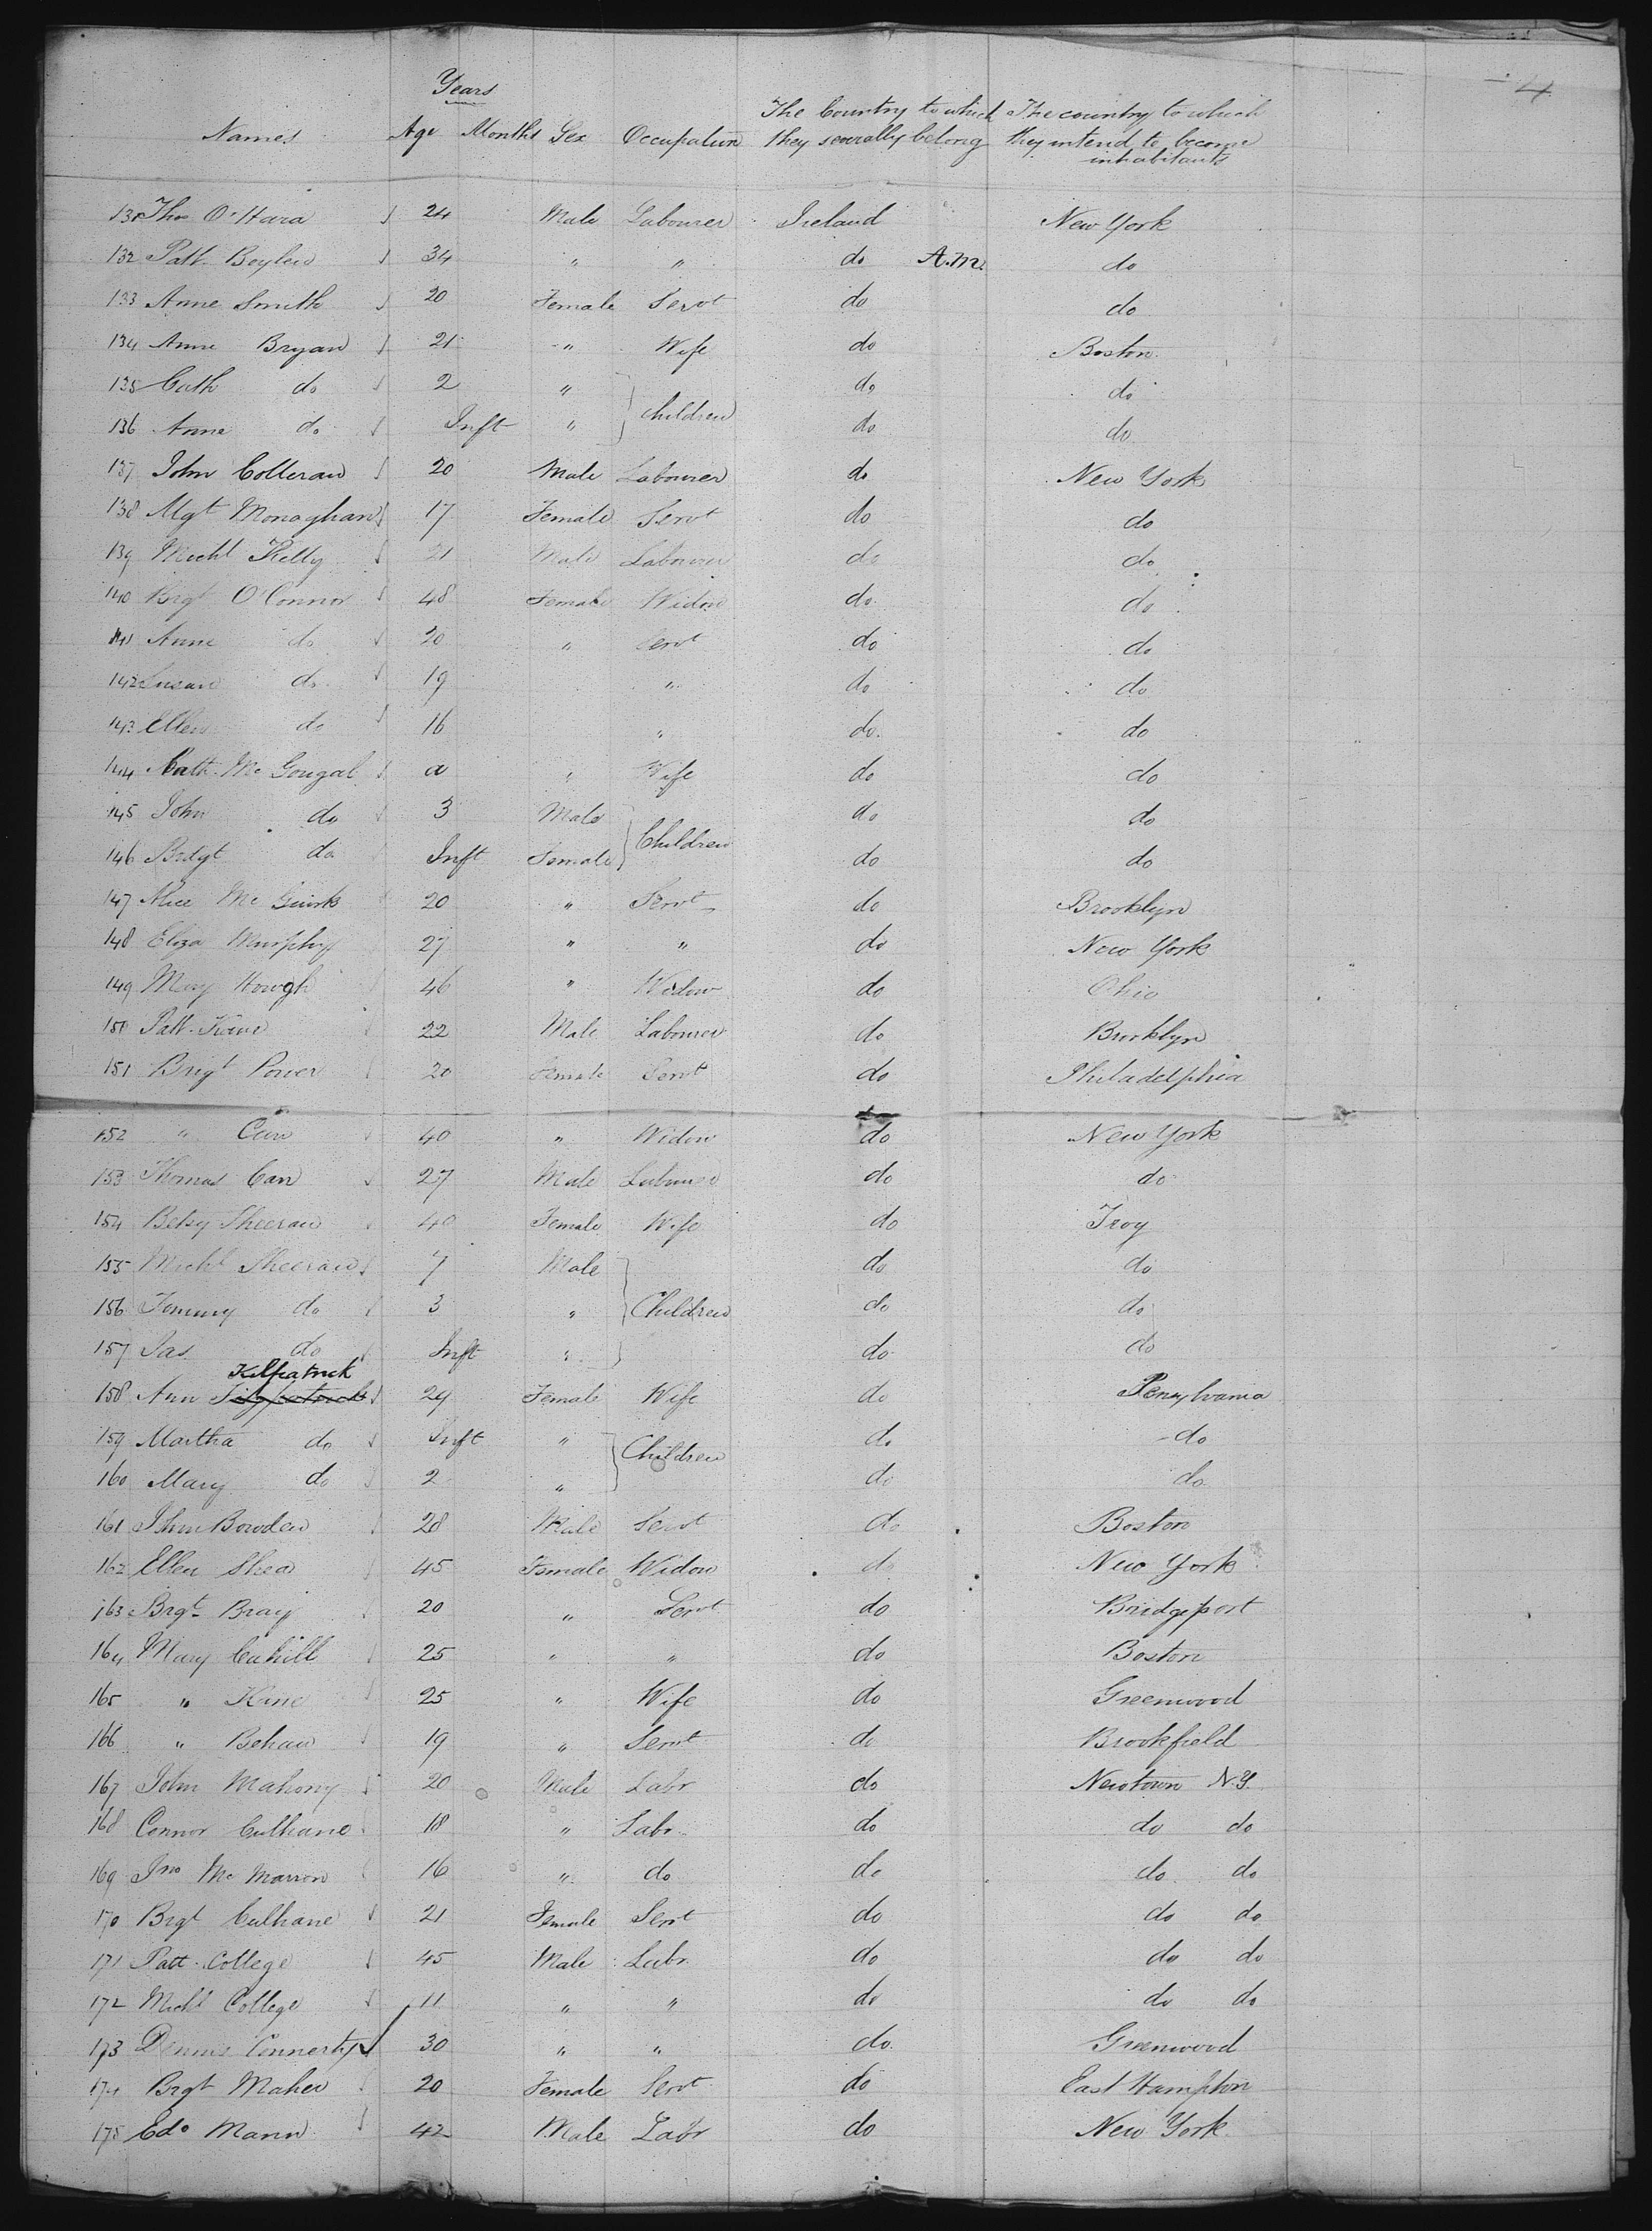 4
Years
Names Age Months Sex Occupation The Country to which they severally belong The country to which they intend to become inhabitants
131 Thos O'Hara 24 Male Labourer Ireland New York
132 Patt Boylen 34 " " do A.M. do
133 Anne Smith 20 Female Servt do do
134 Anne Bryan 21 " Wife do Boston
135 Cath do 2 " Children do do
136 Anne do Inft " do do
137 John Colleran 20 Male Labourer do New York
138 Mgt Monaghan 17 Female Servt do do
139 Michl Kelly 21 Male Labourer do do
140 Brgt O'Connor 48 Female Widow do do
141 Anne do 20 " Servt do do
142 Susan do 19 " do do
143 Ellen do 16 " do do
144 Cath Mc Gougal a " Wife do do
145 John do 3 Male Children do do
146 Bridgt do Inft Female do do
147 Alice Mc 20 " Servt do Brooklyn
148 Eliza Murphy 27 " " do New York
149 Mary Hough 46 " Widow do Ohio
150 Patt 22 Male Labourer do Brooklyn
151 Brigt Power 20 Female Servt do Philadelphia
152 " Can 40 " Widow do New York
153 Thomas Can 27 Male Labourer do do
154 Betsy Sheeran 40 Female Wife do Troy
155 Michl Sheeran 7 Male do do
156 do 3 " Children do do
157 Jas do Inft " do do
Kilpatrick
158 Ann Fitzpatrick 29 Female Wife do Pensylvania
159 Martha do Inft " Children do do
160 Mary do 2 " do do
161 John Bowden 28 Male Servt do Boston
162 Ellen Shea 45 Female Widow do New York
163 Brgt Bray 20 " Servt do Bridgeport
164 Mary Cahill 25 " " do Boston
165 " Kane 25 " Wife do Greenwood
166 " Behan 19 " Servt do Brookfield
167 John Mahony 20 Male Labr do Newtown N.Y.
168 Connor Culhane 18 " Labr do do do
169 Jno Mc Marron 16 " do do do do
170 Brgt Culhane 21 Female Servt do do do
171 Patt College 45 Male Labr do do do
172 Michl College 11 " " do do do
173 Dennis Connerty 30 " " do Greenwood
174 Brgt Maher 20 Female Servt do East Hampton
175 Edd Mann 42 Male Labr do New York